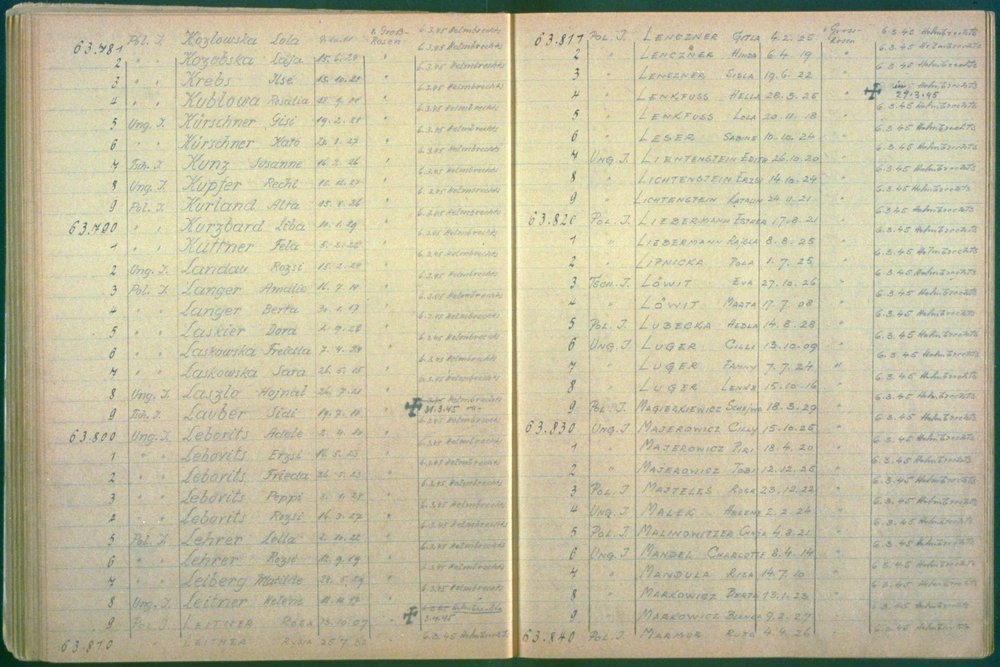 63.781 Pol. J. Kozlowska Lola v. Groß-Rosen 6.3.45 Helmbrechts
2 " " Kozobska 6.3.45 Helmbrechts
3 " " Krebs Ilse 15.10.21 " 6.3.45 Helmbrechts
4 " " Kublowa Rosalia " 6.3.45 Helmbrechts
5 Ung. J. Kürschner Gisi 19.2.21 " 6.3.45 Helmbrechts
6 " " Kürschner Kato " 6.3.45 Helmbrechts
7 Kunz Susanne 16.2.26 " 6.3.45 Helmbrechts
8 Ung. J. Kupfer " 6.3.45 Helmbrechts
9 Pol. J. Kurland Alta " 6.3.45 Helmbrechts
Kurzbard " 6.3.45 Helmbrechts
1 " " Kuttner Fela " 6.3.45 Helmbrechts
2 Ung. J. Landau Rozsi 15.2.24 " 6.3.45 Helmbrechts
3 Pol. J. Langer Amalie 16.7.19 " 6.3.45 Helmbrechts
4 " " Langer Berta " 6.3.45 Helmbrechts
5 " " Laskier Dora 2.9.28 " 6.3.45 Helmbrechts
6 " " Laskowska 7.4.24 " 6.3.45 Helmbrechts
7 " " Laskowska Sara 26.5.15 " 6.3.45 Helmbrechts
8 Ung. J. Laszlo Hajnal 26.7.21 "
9 Lauber Sidi 19.7.18 " 6.3.45 Helmbrechts
63.800 Ung. J. Lebovits Adele " 6.3.45 Helmbrechts
1 " " Lebovits Erzsi 16.5.23 " 6.3.45 Helmbrechts
2 " " Lebovits Frieda 26.5.23 " 6.3.45 Helmbrechts
3 " " Lebovits " 6.3.45 Helmbrechts
Lebovits Rozsi 16.3.27 " 6.3.45 Helmbrechts
5 Pol. J. Lehrer Lolla 2.10.22 " 6.3.45 Helmbrechts
6 " " Lehrer Rozsi 12.9.19 " 6.3.45 Helmbrechts
7 " " Leiberg Matilde " 6.3.45 Helmbrechts
8 Ung. J. Leitner Helene "
9 Pol. J. Leitner Roza 13.10.07 "
63.810 Leitner 6.3.45 Helmbrechts
63.811 Pol. J. Lenczner Gitla 4.2.25 v. Gross-Rosen 6.3.45 Helmbrechts
2 " Lenczner Hinda 6.4.19 " 6.3.45 Helmbrechts
3 " Lenczner 19.6.22 " 6.3.45 Helmbrechts
4 " Lenkfuss Hella 28.3.25 " 29.3.45
5 " Lenkfuss Lola 20.11.18 " 6.3.45 Helmbrechts
6 " Leser Sabine 10.10.24 " 6.3.45 Helmbrechts
7 Ung. J. Lichtenstein Edith 26.10.20 " 6.3.45 Helmbrechts
8 " Lichtenstein Erzsi 14.10.24 " 6.3.45 Helmbrechts
9 " Lichtenstein Katalin 24.11.21 " 6.3.45 Helmbrechts
63.820 Pol. J. Liebermann Esther 17.8.21 " 6.3.45 Helmbrechts
1 " Liebermann Rajzla 8.8.25 " 6.3.45 Helmbrechts
2 " Lipnicka Pola 1.7.25 " 6.3.45 Helmbrechts
3 Tsch. J. Löwit Eva 27.10.26 " 6.3.45 Helmbrechts
4 " Löwit Marta 17.7.08 " 6.3.45 Helmbrechts
5 Pol. J. Lubecka Hedla 14.8.28 " 6.3.45 Helmbrechts
6 Ung. J. Luger Cilli 13.10.09 " 6.3.45 Helmbrechts
7 " Luger Fanny 7.7.24 " 6.3.45 Helmbrechts
8 " Luger 15.10.16 " 6.3.45 Helmbrechts
9 Pol. J. Magierkiewicz 18.3.29 " 6.3.45 Helmbrechts
63.830 Ung. J. Majerowicz Cilly 15.10.25 " 6.3.45 Helmbrechts
1 " Majerowicz Piri 18.4.20 " 6.3.45 Helmbrechts
2 " Majerowicz Tobi 12.12.25 " 6.3.45 Helmbrechts
3 Pol. J. Majteles Rosa 23.12.22 " 6.3.45 Helmbrechts
4 Ung. J. Malek Helene 2.2.24 " 6.3.45 Helmbrechts
5 Pol. J. Malinowitzer 4.3.21 " 6.3.45 Helmbrechts
6 Ung. J. Mandel Charlotte 8.4.14 " 6.3.45 Helmbrechts
7 " Mandula 14.7.10 " 6.3.45 Helmbrechts
8 " Markowicz Berta 13.1.23 " 6.3.45 Helmbrechts
9 " Markowicz 9.2.27 " 6.3.45 Helmbrechts
63.840 Pol. J. Marmor 4.4.26 " 6.3.45 Helmbrechts